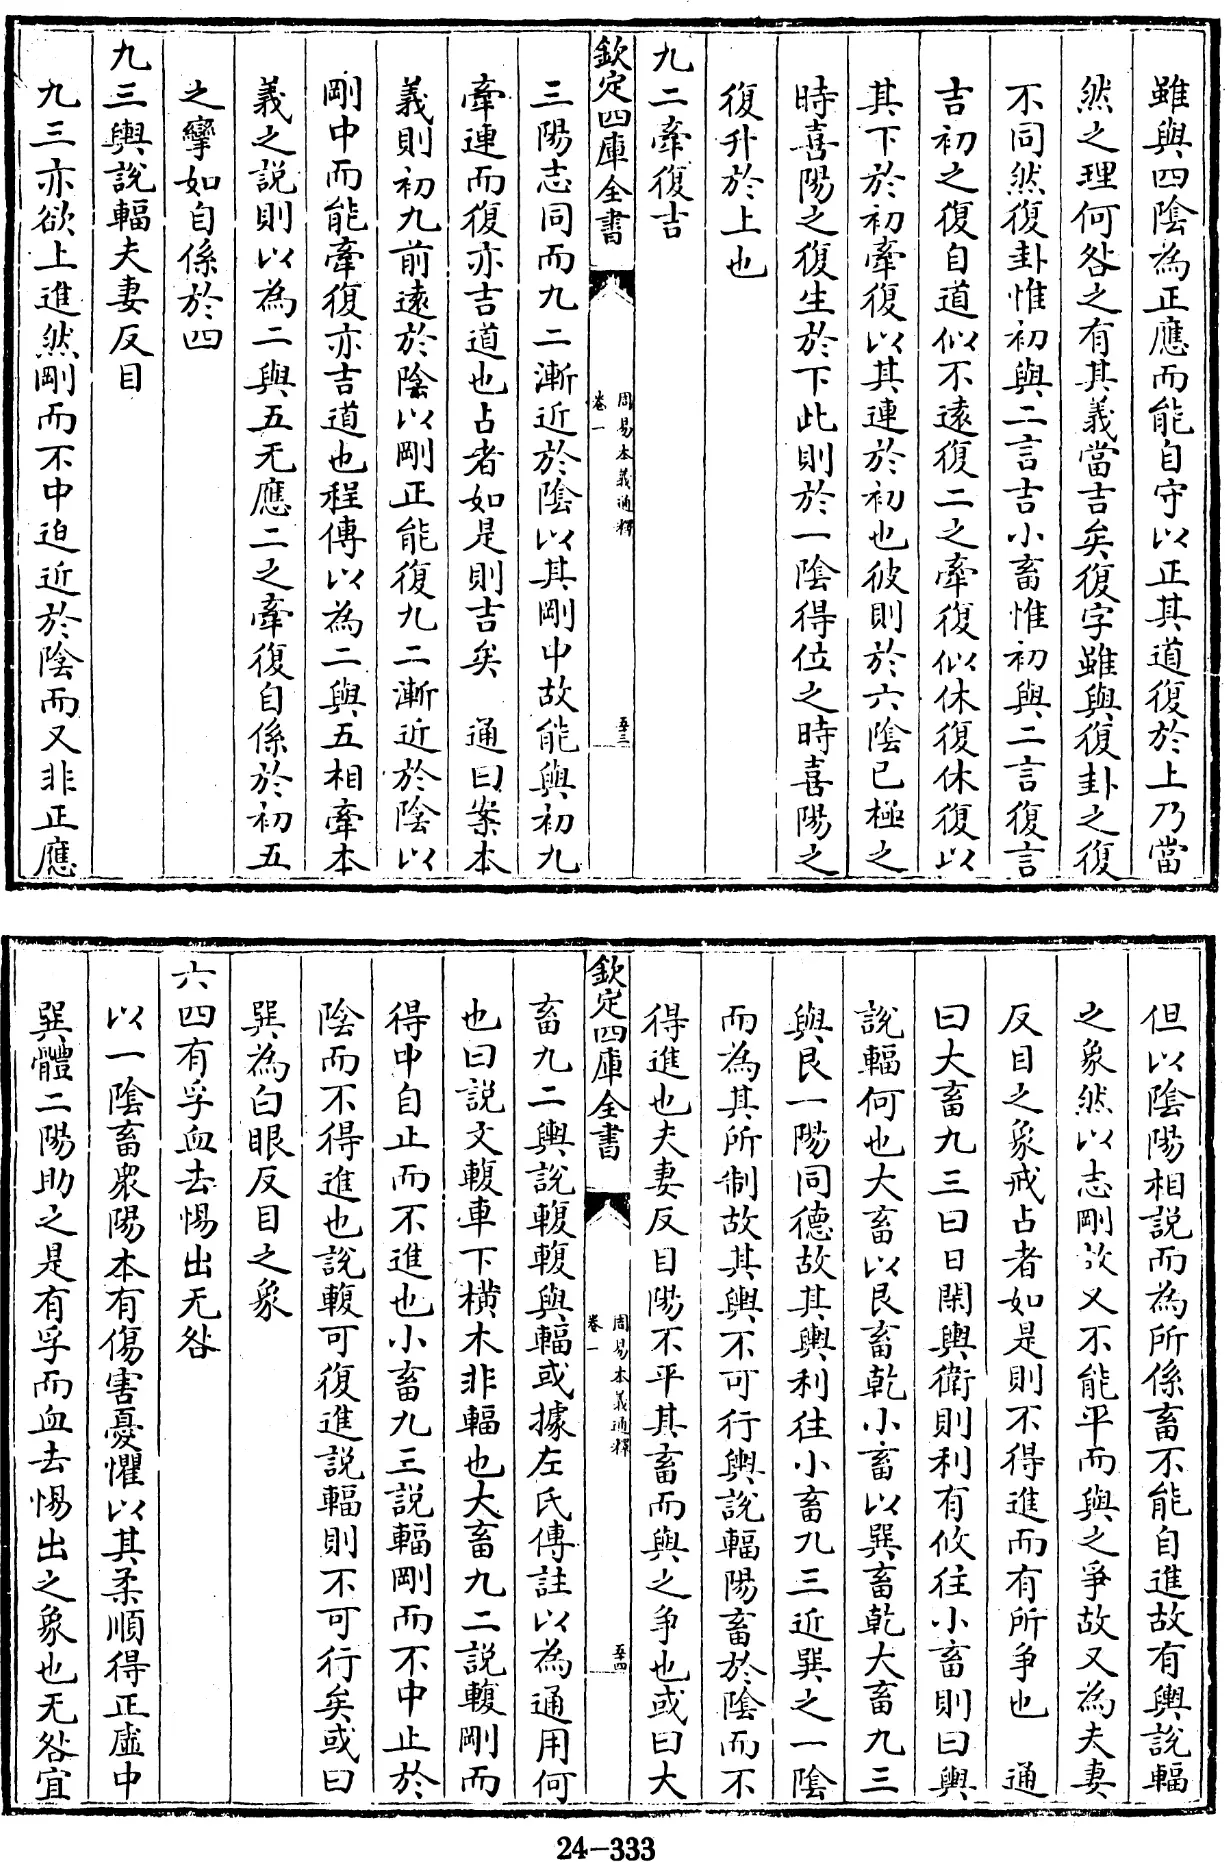 雖與四陰為正應而能自守以正其道復於上乃當
然之理何咎之有其義當吉矣復字雖與復卦之復
不同然復卦惟初與二言吉小畜惟初與二言復言
吉初之復自道似不遠復二之牽復似休復休復以
其下於初牽復以其連於初也彼則於六陰已極之
時喜陽之復生於下此則於一陰得位之時喜陽之
復升於上也
九二牽復吉
欽定四庫全書
周易本義通釋
卷一
五十三
三陽志同而九二漸近於陰以其剛中故能與初九
牽連而復亦吉道也占者如是則吉矣 通曰案本
義則初九前遠於陰以剛正能復九二漸近於陰以
剛中而能牽復亦吉道也程傳以為二與五相牽本
義之説則以為二與五无應二之牽復自係於初五
之攣如自係於四
九三輿說輻夫妻反目
九三亦欲上進然剛而不中迫近於陰而又非正應
但以陰陽相説而為所係畜不能自進故有輿說輻
之象然以志剛故又不能平而與之爭故又為夫妻
反目之象戒占者如是則不得進而有所爭也 通
曰大畜九三曰日閑輿衛則利有攸往小畜則曰輿
說輻何也大畜以艮畜乾小畜以巽畜乾大畜九三
與艮一陽同德故其輿利往小畜九三近巽之一陰
而為其所制故其輿不可行輿說輻陽畜於陰而不
得進也夫妻反目陽不平其畜而與之争也或曰大
欽定四庫全書
周易本義通釋
卷一
五十四
畜九二輿說輹輹與輻或據左氏傳註以為通用何
也曰説文輹車下横木非輻也大畜九二説輹剛而
得中自止而不進也小畜九三説輻剛而不中止於
陰而不得進也說輹可復進説輻則不可行矣或曰
巽為白眼反目之象
六四有孚血去惕出无咎
以一陰畜衆陽本有傷害憂懼以其柔順得正虛中
巽體二陽助之是有孚而血去惕出之象也无咎宜
24-333